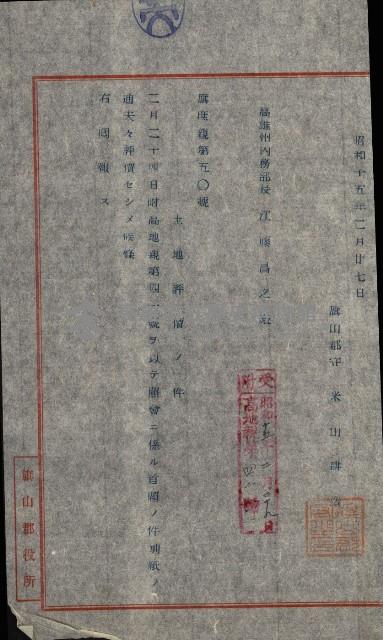 昭和十五年二月廿七日
旗山郡守 米山
高雄州內務部長 江藤昌之殿
旗庶親第五〇號
土地評價ノ件
二月二十四日附高地親第四一號ヲ以テ照會ニ係ル首題ノ件別紙ノ
通夫々評價セシメ候條
右回報ス
受 昭和十五年二月廿九日
附 高地 第四一號
旗山郡役所